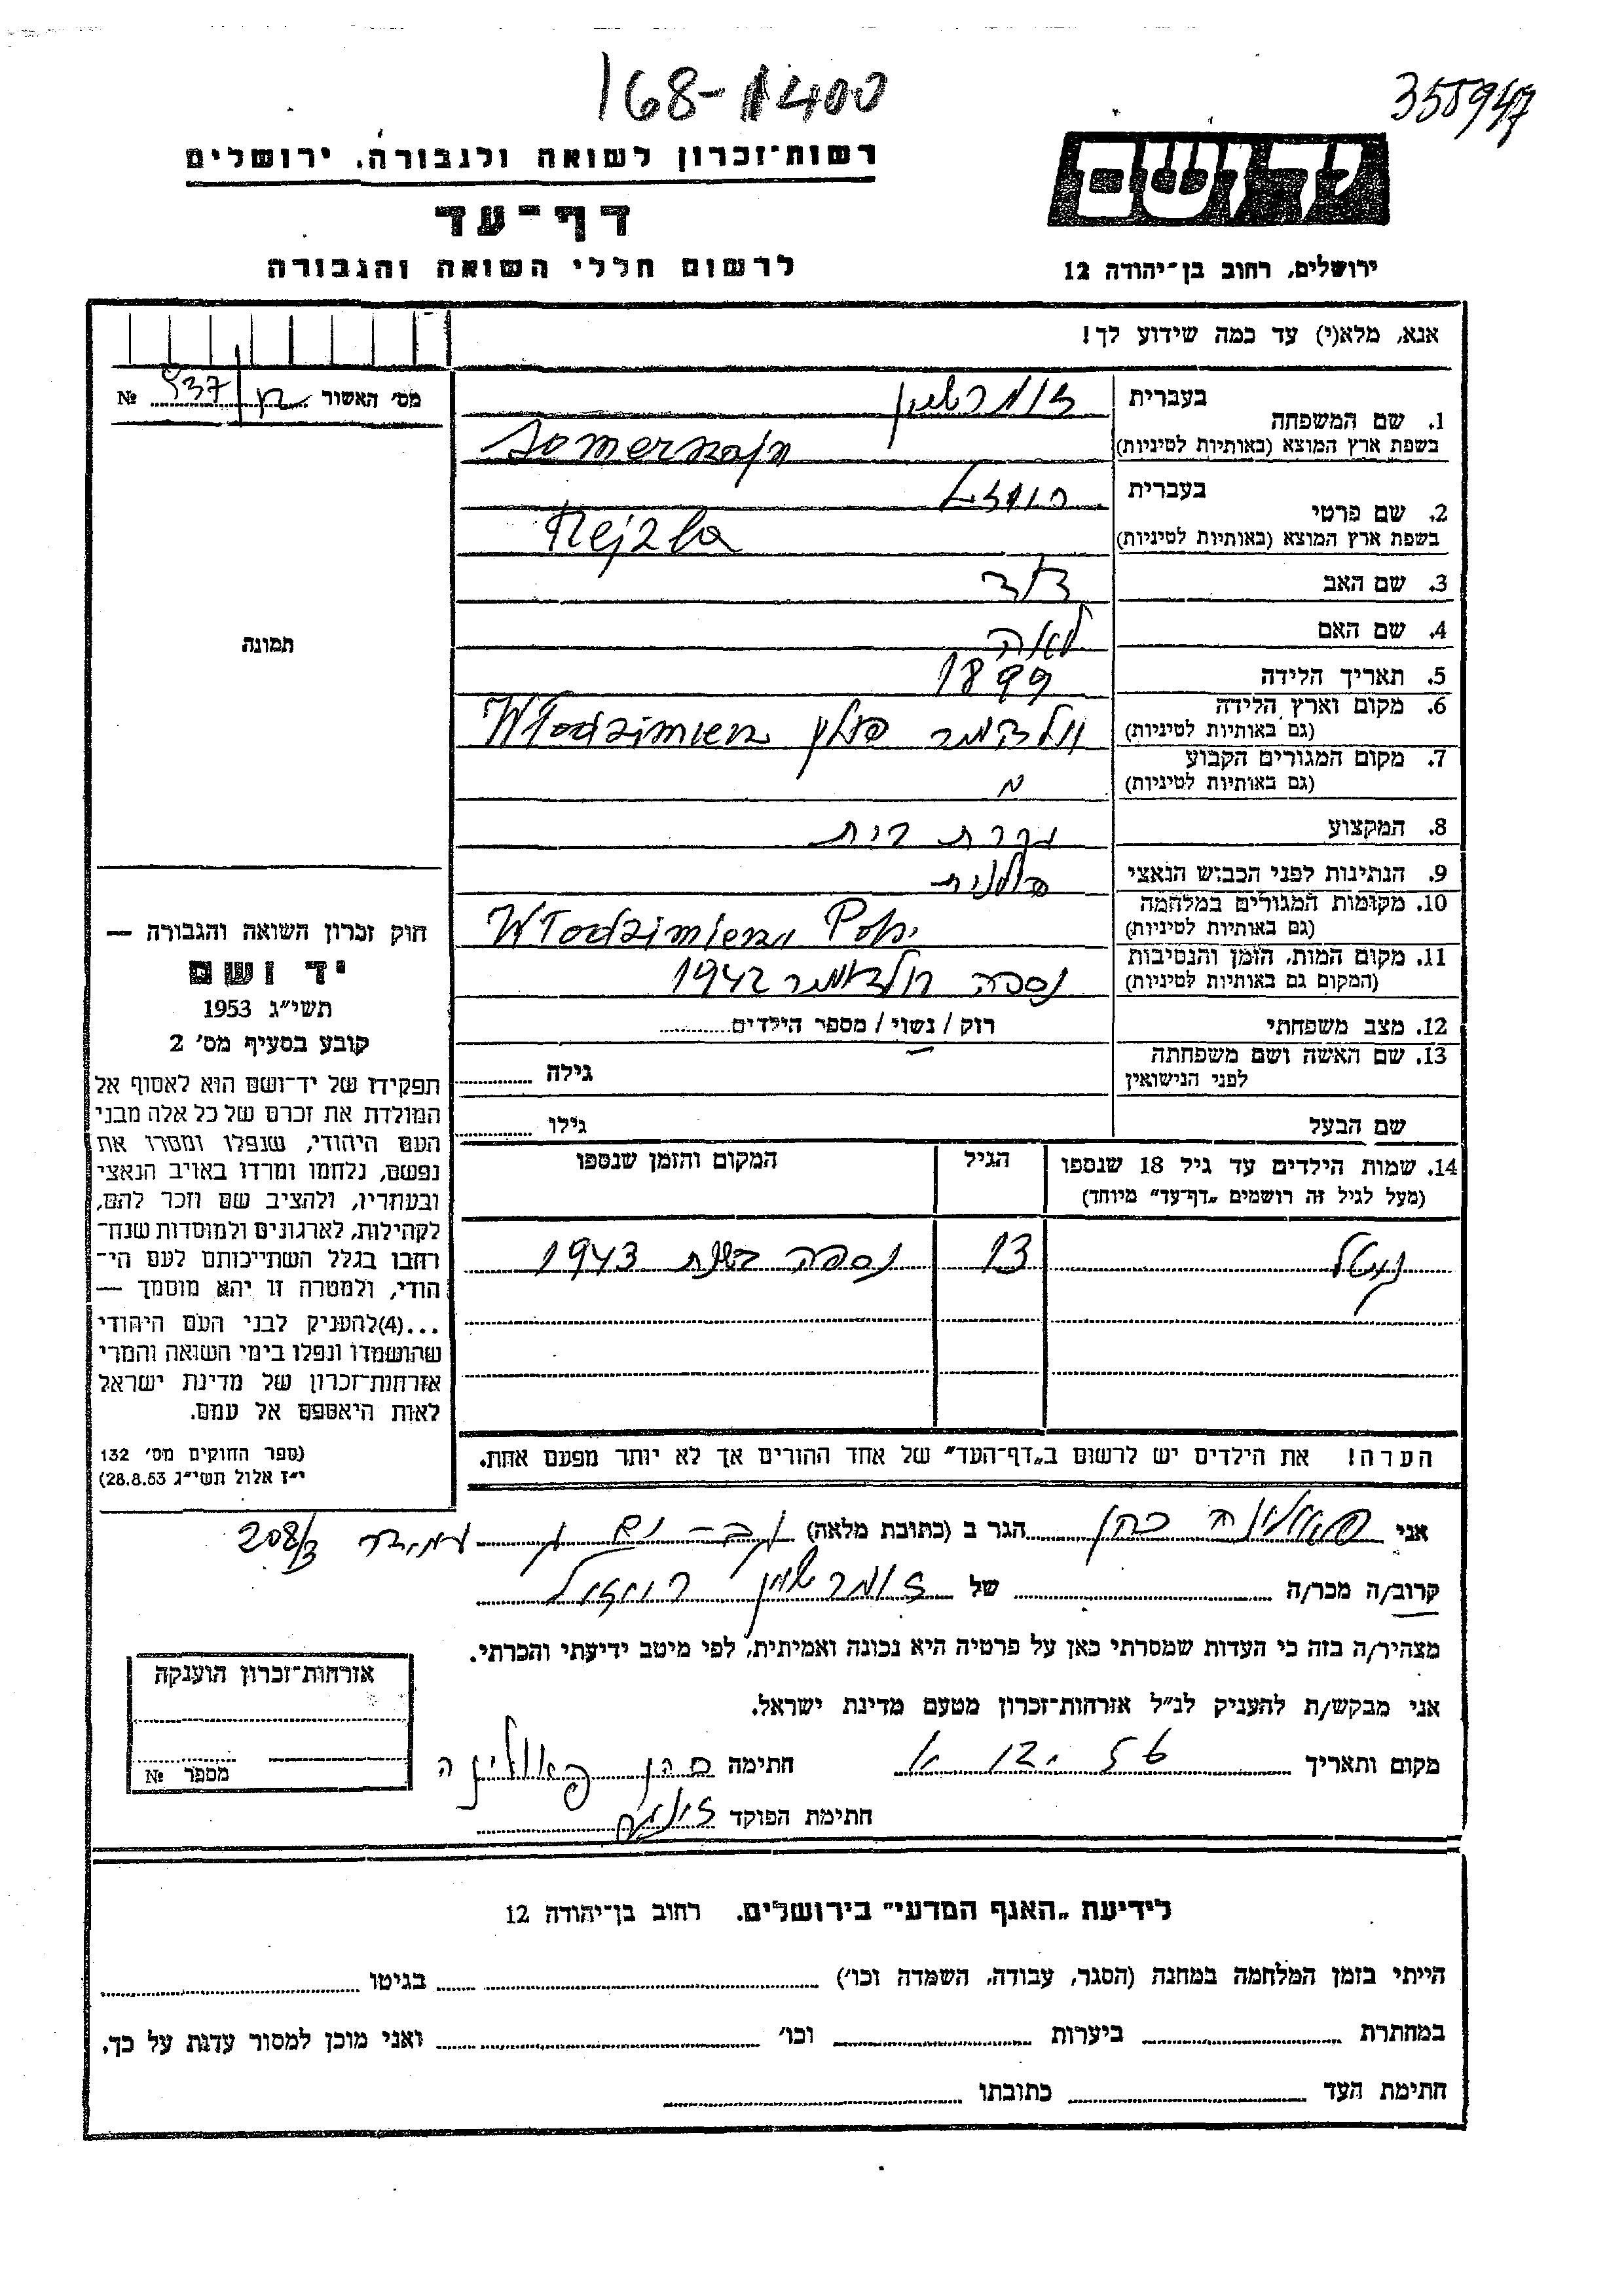 168-1400
355947
רשות־זכרון לשואה ולגבורה, ירושלים
דף־עד
לרשום חללי השואה והגבורה
יד ושם
ירושלים, רחוב בן־יהודה 12
אנא, מלא(י) עד כמה שידוע לך!
מס' האשור № 937
1. שם המשפחה
בעברית
בשפת ארץ המוצא (באותיות לטיניות)
2. שם פרטי
בעברית
בשפת ארץ המוצא (באותיות לטיניות) Rejzla
3. שם האב דוד
4. שם האם לאה
5. תאריך הלידה 1899
6. מקום וארץ הלידה
(גם באותיות לטיניות) פולין
7. מקום המגורים הקבוע
(גם באותיות לטיניות) "
8. המקצוע עקרת בית
9. הנתינות לפני הכבוש הנאצי פולנית
10. מקומות המגורים במלחמה
(גם באותיות לטיניות)
11. מקום המות, הזמן והנסיבות
(המקום גם באותיות לטיניות) נספה 1942
12. מצב משפחתי רוק / נשוי / מספר הילדים
13. שם האשה ושם משפחתה
לפני הנישואין גילה
שם הבעל גילו
14. שמות הילדים עד גיל 18 שנספו
(מעל לגיל זה רושמים „דף־עד" מיוחד)
הגיל
המקום והזמן שנספו
13 נספה בשנת 1943
הערה! את הילדים יש לרשום ב„דף־העד" של אחד ההורים אך לא יותר מפעם אחת.
תמונה
חוק זכרון השואה והגבורה —
יד ושם
תשי"ג 1953
קובע בסעיף מס' 2
תפקידו של יד־ושם הוא לאסוף אל
המולדת את זכרם של כל אלה מבני
העם היהודי, שנפלו ומסרו את
נפשם, נלחמו ומרדו באויב הנאצי
ובעוזריו, ולהציב שם וזכר להם,
לקהילות, לארגונים ולמוסדות שנח־
רבו בגלל השתייכותם לעם הי־
הודי, ולמטרה זו יהא מוסמך —
...(4) להעניק לבני העם היהודי
שהושמדו ונפלו בימי השואה והמרי
אזרחות־זכרון של מדינת ישראל
לאות היאספם אל עמם.
(ספר החוקים מס' 132
י"ז אלול תשי"ג 28.8.53)
אני כהן הגר ב (כתובת מלאה) בת-ים עמידר 208/3
קרוב/ה מכר/ה של
מצהיר/ה בזה כי העדות שמסרתי כאן על פרטיה היא נכונה ואמיתית, לפי מיטב ידיעתי והכרתי.
אני מבקש/ת להעניק לנ"ל אזרחות־זכרון מטעם מדינת ישראל.
מקום ותאריך חתימה כהן
חתימת הפוקד
אזרחות־זכרון הוענקה
מספר №
לידיעת „האגף המדעי" בירושלים. רחוב בן־יהודה 12
הייתי בזמן המלחמה במחנה (הסגר, עבודה, השמדה וכו') בגיטו
במחתרת ביערות וכו' ואני מוכן למסור עדות על כך.
חתימת העד כתובתו